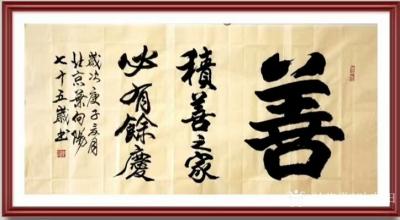 善
積善之家
必有餘慶
歲次庚子亥月
北京葉向陽
七十五歲書